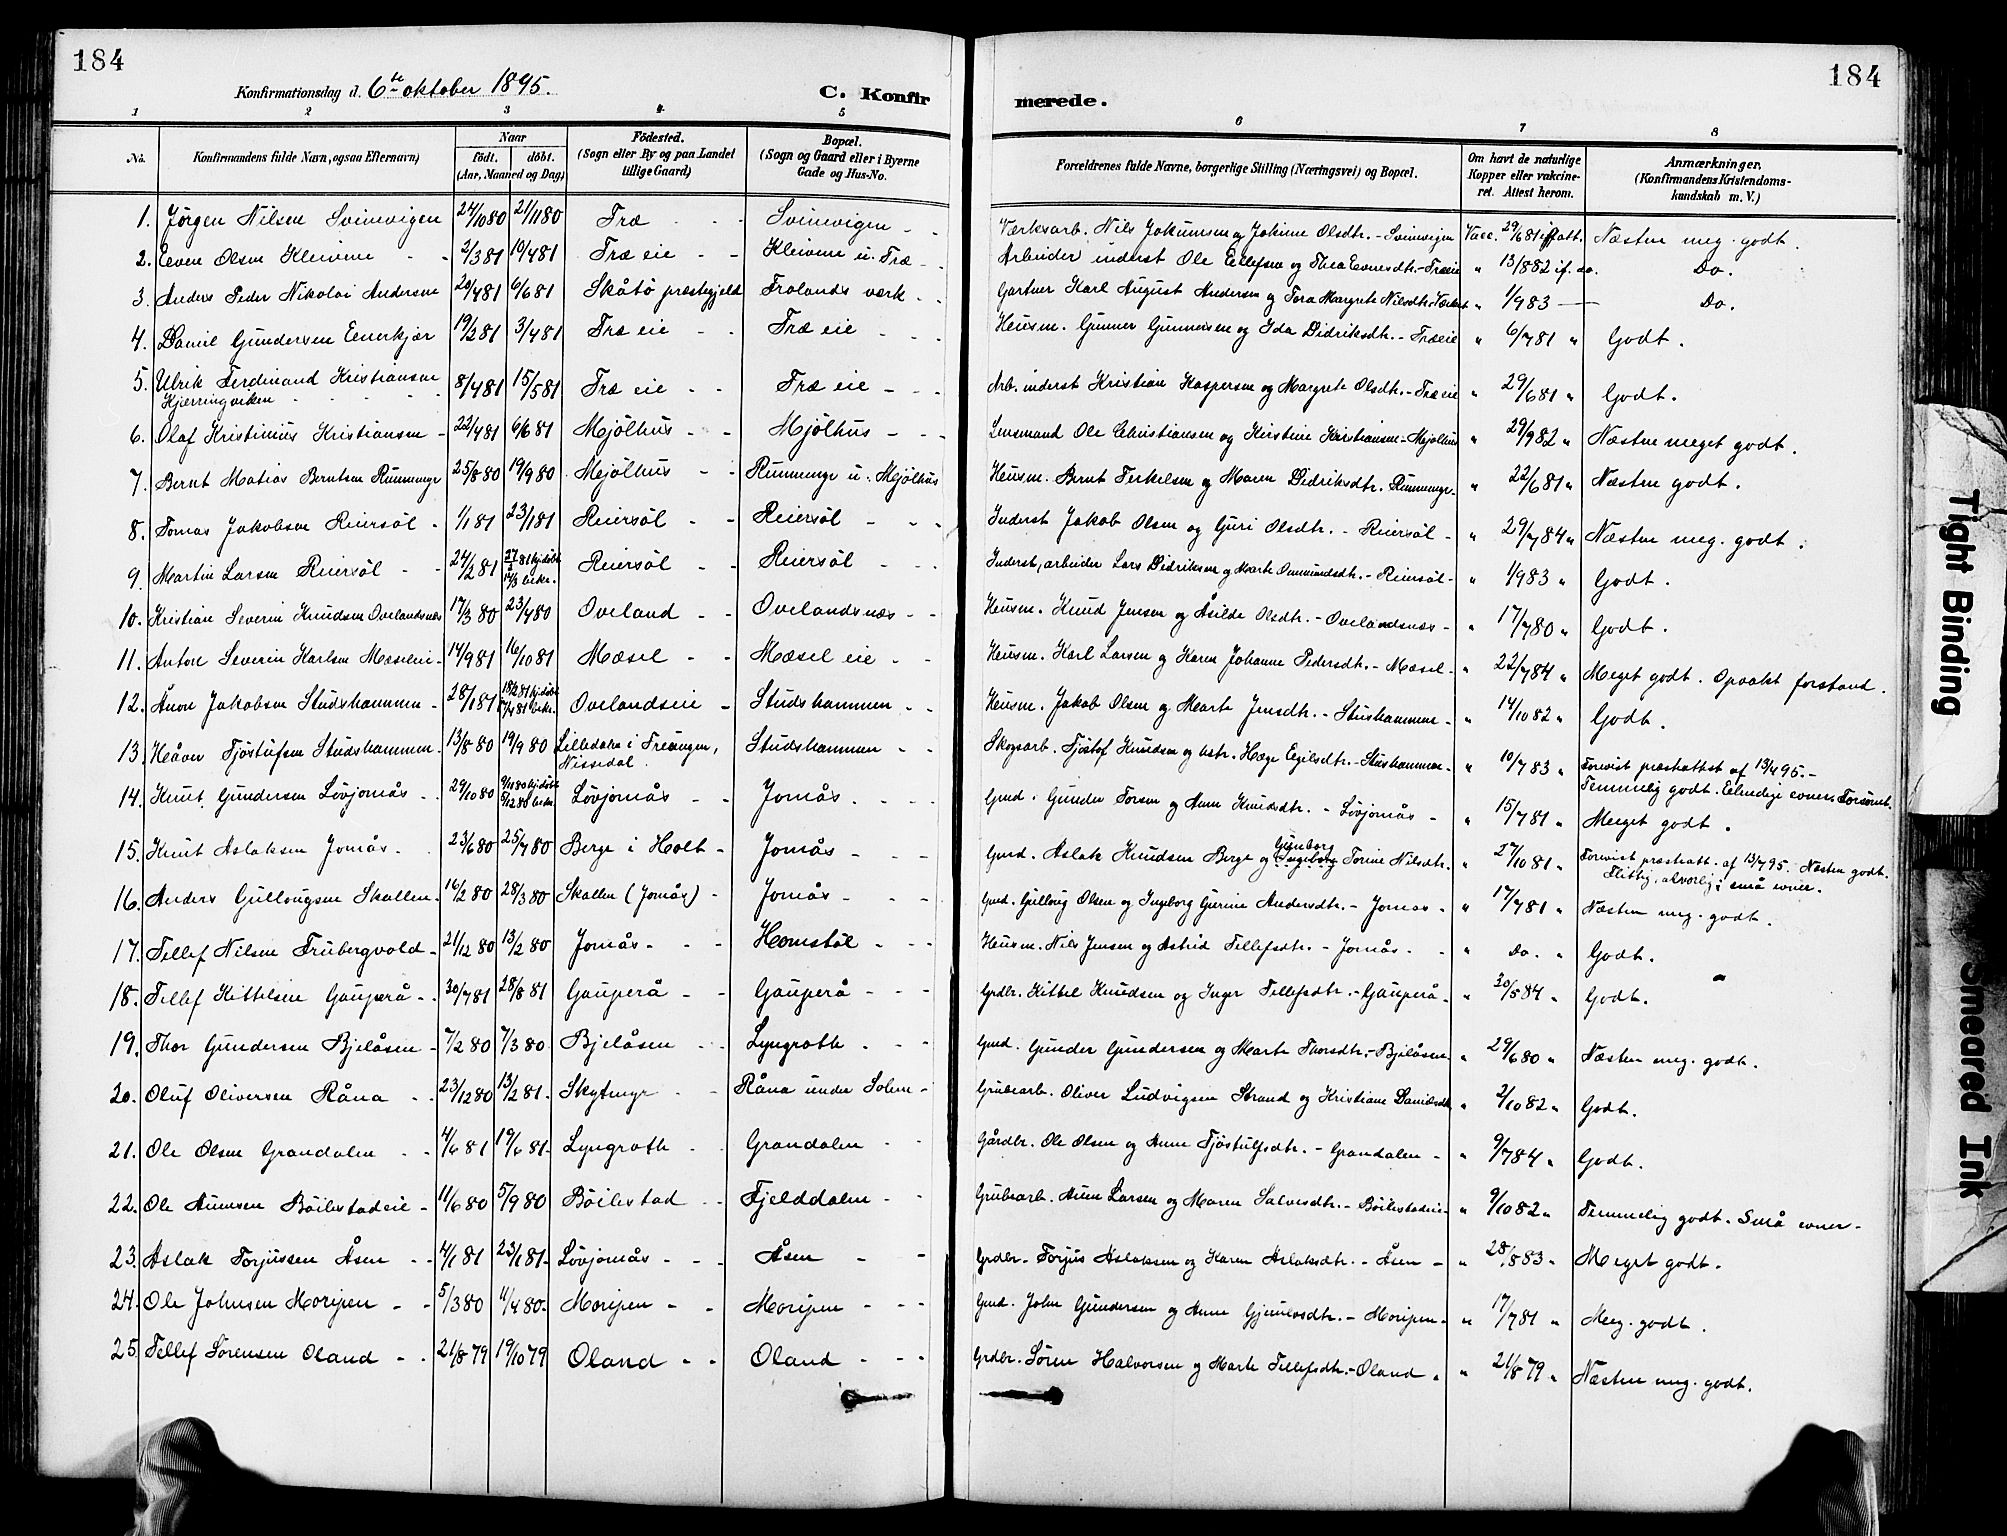 184
Konfirmationsdag d. 6te oktober 1895.
C. Konfir
merede.
184
1 2 3 4 5 6 7 8
No. Konfirmandens fulde Navn, ogsaa Efternavn) Naar födt. döbt. (Aar, Maaned og Dag) Födested. (Sogn eller By og paa Landet tillige Gaard) Bopæl. (Sogn og Gaard eller i Byerne Gade og Hus-No. Forældrenes fulde Navne, borgerlige Stilling (Næringsvei) og Bopæl. Om havt de naturlige Kopper eller vakcineret. Attest herom. Anmærkninger. (Konfirmandens Kristendomskundskab m. V.)
1. Jørgen Nilsen Svinevigen 24/10 80 21/11 80 Træ - - Svinevigen - - Værksarb. Nils Jokumsen og Jokine Olsdtr. - Svinevigen Vacc. 29/6 81 if. att. Næsten meg. godt.
2. Even Olsen Kleivene - - 2/3 81 10/4 81 Træ eie - - Kleivene u. Træ - Arbeider inderst Ole Eellefsen og Thea Evensdtr. - Træeie " 13/8 82 if. do. Do.
3. Anders Peder Nikolai Andersen 20/4 81 6/6 81 Skåtö præstegjeld Frolands værk - - Gartner Karl August Andersen og Tora Margrete Nilsdtr. Værket " 1/9 83 — Do.
4. Daniel Gundersen Eenerkjær 19/2 81 3/4 81 Træ eie - - Træ eie - - Heusm. Gunner Gunnersen og Ida Didriksdtr. - Træeie " 6/7 81 " Godt.
5. Ulrik Ferdinand Kristiansen Kjærringveken - - 8/4 81 15/5 81 Træ eie - - Træ eie - - Arb. inderst Kristian Kaspersen og Margrete Olsdtr. - Træ eie " 29/6 81 " Godt.
6. Olaf Kristinius Kristiansen - 22/4 81 6/6 81 Mjölhus - - Mjölhus - - Lensmand Ole Christiansen og Kirstine Kristiansen - Mjölhus " 29/9 82 " Næsten meget godt.
7. Bernt Matias Berntsen Runnmyr 25/8 80 19/9 80 Mjölhus - - Runnmyr u. Mjölhus Heusm. Bernt Terkelsen og Maren Didriksdtr. Runnmyr - " 22/6 81 " Næsten godt.
8. Tomas Jakobsen Reiersöl - 1/1 81 23/1 81 Reiersöl - - Reiersöl - - Inderst Jakob Olsen og Guri Olsdtr. - Reiersöl - " 29/7 84 " Næsten meg. godt.
9. Martin Larsen Reiersöl - - 24/2 81 27/2 81 hj.döbt 14/3 bekr. Reiersöl - - Reiersöl - - Inderst, arbeider Lars Didriksen og Marte Ommundsdtr. - Reiersöl - " 1/9 83 " Godt.
10. Kristian Severin Knudsen Ovelandsnæs 17/3 80 23/4 80 Oveland - - Ovelandsnæs - - Heusm. Knud Jensen og Åsilde Olsdtr. - Ovelandsnæs - " 17/7 80 " Godt.
11. Anton Severin Karlsen Mæseleie - 14/9 81 16/10 81 Mæsel - - Mæsel eie - - Heusm. Karl Larsen og Karen Johanne Pedersdtr. - Mæsel - " 22/7 84 " Meget godt. Opvakt forstand.
12. Åvon Jakobsen Studshammen - 28/1 81 18/2 81 hj.döbt 17/4 81 bekr. Ovelandseie - Studshammen - - Heusm. Jakob Olsen og Marte Jensdtr. - Stushammen - " 14/10 82 " Godt.
13. Håvor Tjöstufsen Studshammen - 13/8 80 19/9 80 Lilledalen i Treungen, Nissedal. Studshammen - - Skogsarb. Tjöstof Knudsen og hstr. Hæge Egilsdtr. - Stushammen - " 10/7 83 " Forevist præsteattst af 13/4 95. - Temmelig godt. Elendige evner. Forsömt.
14. Knut Gundersen Lövjomås - 29/10 80 9/11 80 hj.döbt 5/12 80 bekr. Lövjomås - - Jomås - - Gmd. Gunder Torsen og Anne Knudsdtr. - Lövjomås - " 15/7 81 " Meget godt.
15. Knut Aslaksen Jomås - 23/6 80 25/7 80 Berge i Holt - Jomås - - Gmd. Aslak Knudsen Berge og Gunborg Ingeborg Torine Nilsdtr. " 27/10 81 " Forevist præsteatt. af 13/7 95. Næsten godt. Flittig, alvorlig; små evner.
16. Anders Gullougsen Skallen - 16/2 80 28/3 80 Skallen (Jomås) - Jomås - - Gmd. Gulloug Olsen og Ingeborg Gurine Andersdtr. - Jomås - " 17/7 81 " Næsten meg. godt.
17. Tellef Nilsen Trubergvold - 21/12 80 13/2 80 Jomås - - Homstöl - - Heusm. Nils Jensen og Astrid Tellefsdtr. - Jomås - " Do. " Godt.
18. Tellef Kittelsen Gauperå - - 30/7 81 28/8 81 Gauperå - - Gauperå - - Grdbr. Kittel Knudsen og Inger Tellefsdtr. - Gauperå - " 30/5 84 " Godt.
19. Thor Gundersen Bjelåsen - 7/2 80 7/3 80 Bjelåsen - - Lyngroth - - Gmd. Gunder Gundersen og Marte Thorsdtr. - Bjelåsen " 29/6 80 " Næsten meg. godt.
20. Oluf Oliversen Råna - - 23/12 80 13/2 81 - Skytmyr - - Råna under Solem - Grubearb. Oliver Ludvigsen Strand og Kristiane Danielsdtr " 2/10 82 " Godt.
21. Ole Olsen Grandalen - - 4/6 81 19/6 81 - Lyngroth - - Grandalen - - Gårdbr. Ole Olsen og Anne Tjöstulfsdtr. - Grandalen - " 9/7 84 " Godt.
22. Ole Aunesen Böilestadeie - 11/6 80 5/9 80 Böilestad - - Fjelddalen - - Grubearb. Aune Larsen og Maren Salvesdtr. - Böilestadeie - " 9/10 82 " Temmelig godt. Små evner -
23. Aslak Torjussen Åsen - - 4/1 81 23/1 81 - Lövjomås - - Åsen - - Grdbr. Torjus Aslaksen og Karen Aslaksdtr. - Åsen - " 28/8 83 " Meget godt.
24. Ole Johnsen Moripen - - 5/3 80 11/4 80 - Moripen - - Moripen - - Gmd. John Gundersen og Anne Gjerulvsdtr. - Moripen - " 17/7 81 " Meg. godt.
25. Tellef Sörensen Oland - - 21/8 79 19/10 79 Oland - - Oland - - Grdbr. Sören Halvorsen og Marte Tellefsdtr. - Oland - " 21/8 79 " Næsten meg. godt.
Tight Binding
Smeared Ink